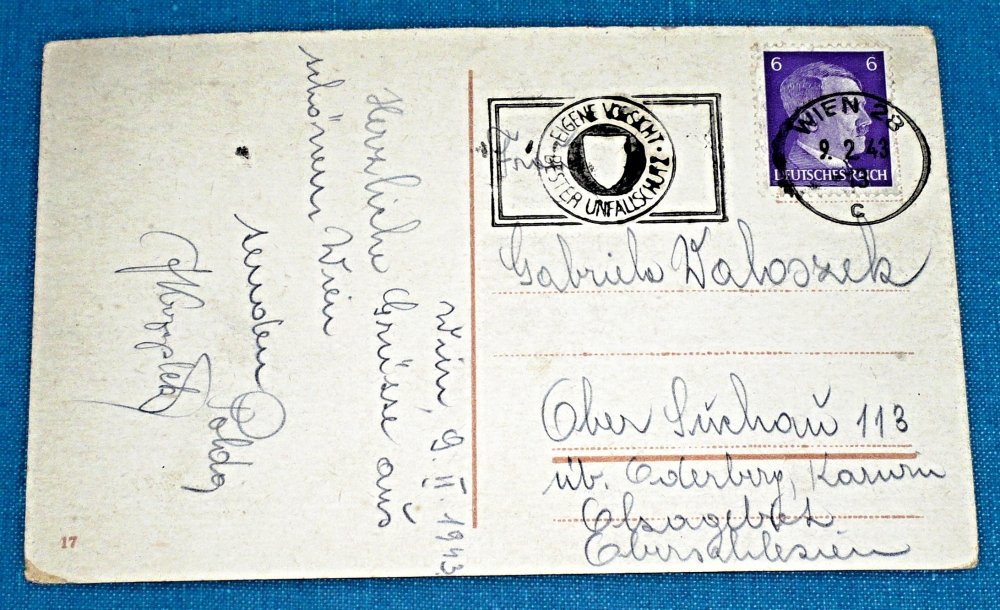 Wien, 9. II. 1943.
Herzliche Grüsse aus
schönem Wien
senden
Poldo
EIGENE VORSICHT · BESTER UNFALLSCHUTZ
6 6
DEUTSCHES REICH
WIEN 28
9. 2. 43
c
Gabriele Waloszek
Ober Suchau 113
üb. Oderberg, Karwin
Olsagebiet
Oberschlesien
17